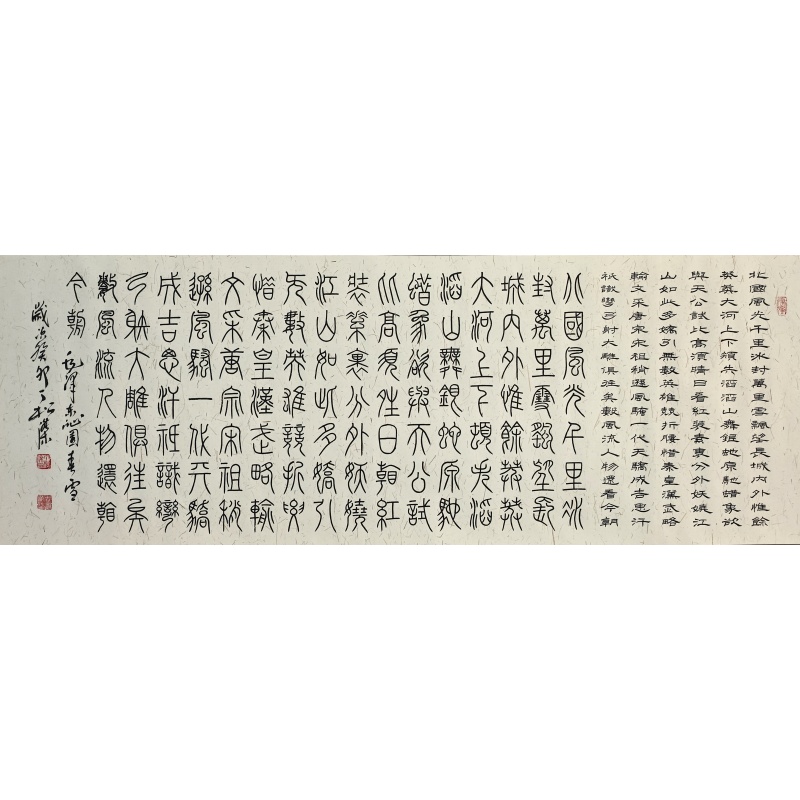 北國風光千里冰封萬里雪飄望長城內外惟餘
莽莽大河上下頓失滔滔山舞銀蛇原馳蜡象欲
與天公試比高須晴日看紅裝素裹分外妖嬈江
山如此多嬌引無數英雄競折腰惜秦皇漢武略
輸文采唐宗宋祖稍遜風騷一代天驕成吉思汗
祇識彎弓射大雕俱往矣數風流人物還看今朝
北國風光千里冰
封萬里雪飄望長
城內外惟餘莽莽
大河上下頓失滔
滔山舞銀蛇原馳
蜡象欲與天公試
比高須晴日看紅
裝素裹分外妖嬈
江山如此多嬌引
無數英雄競折腰
惜秦皇漢武略輸
文采唐宗宋祖稍
遜風騷一代天驕
成吉思汗祇識彎
弓射大雕俱往矣
數風流人物還看
今朝
毛澤東沁園春雪
歲次癸卯